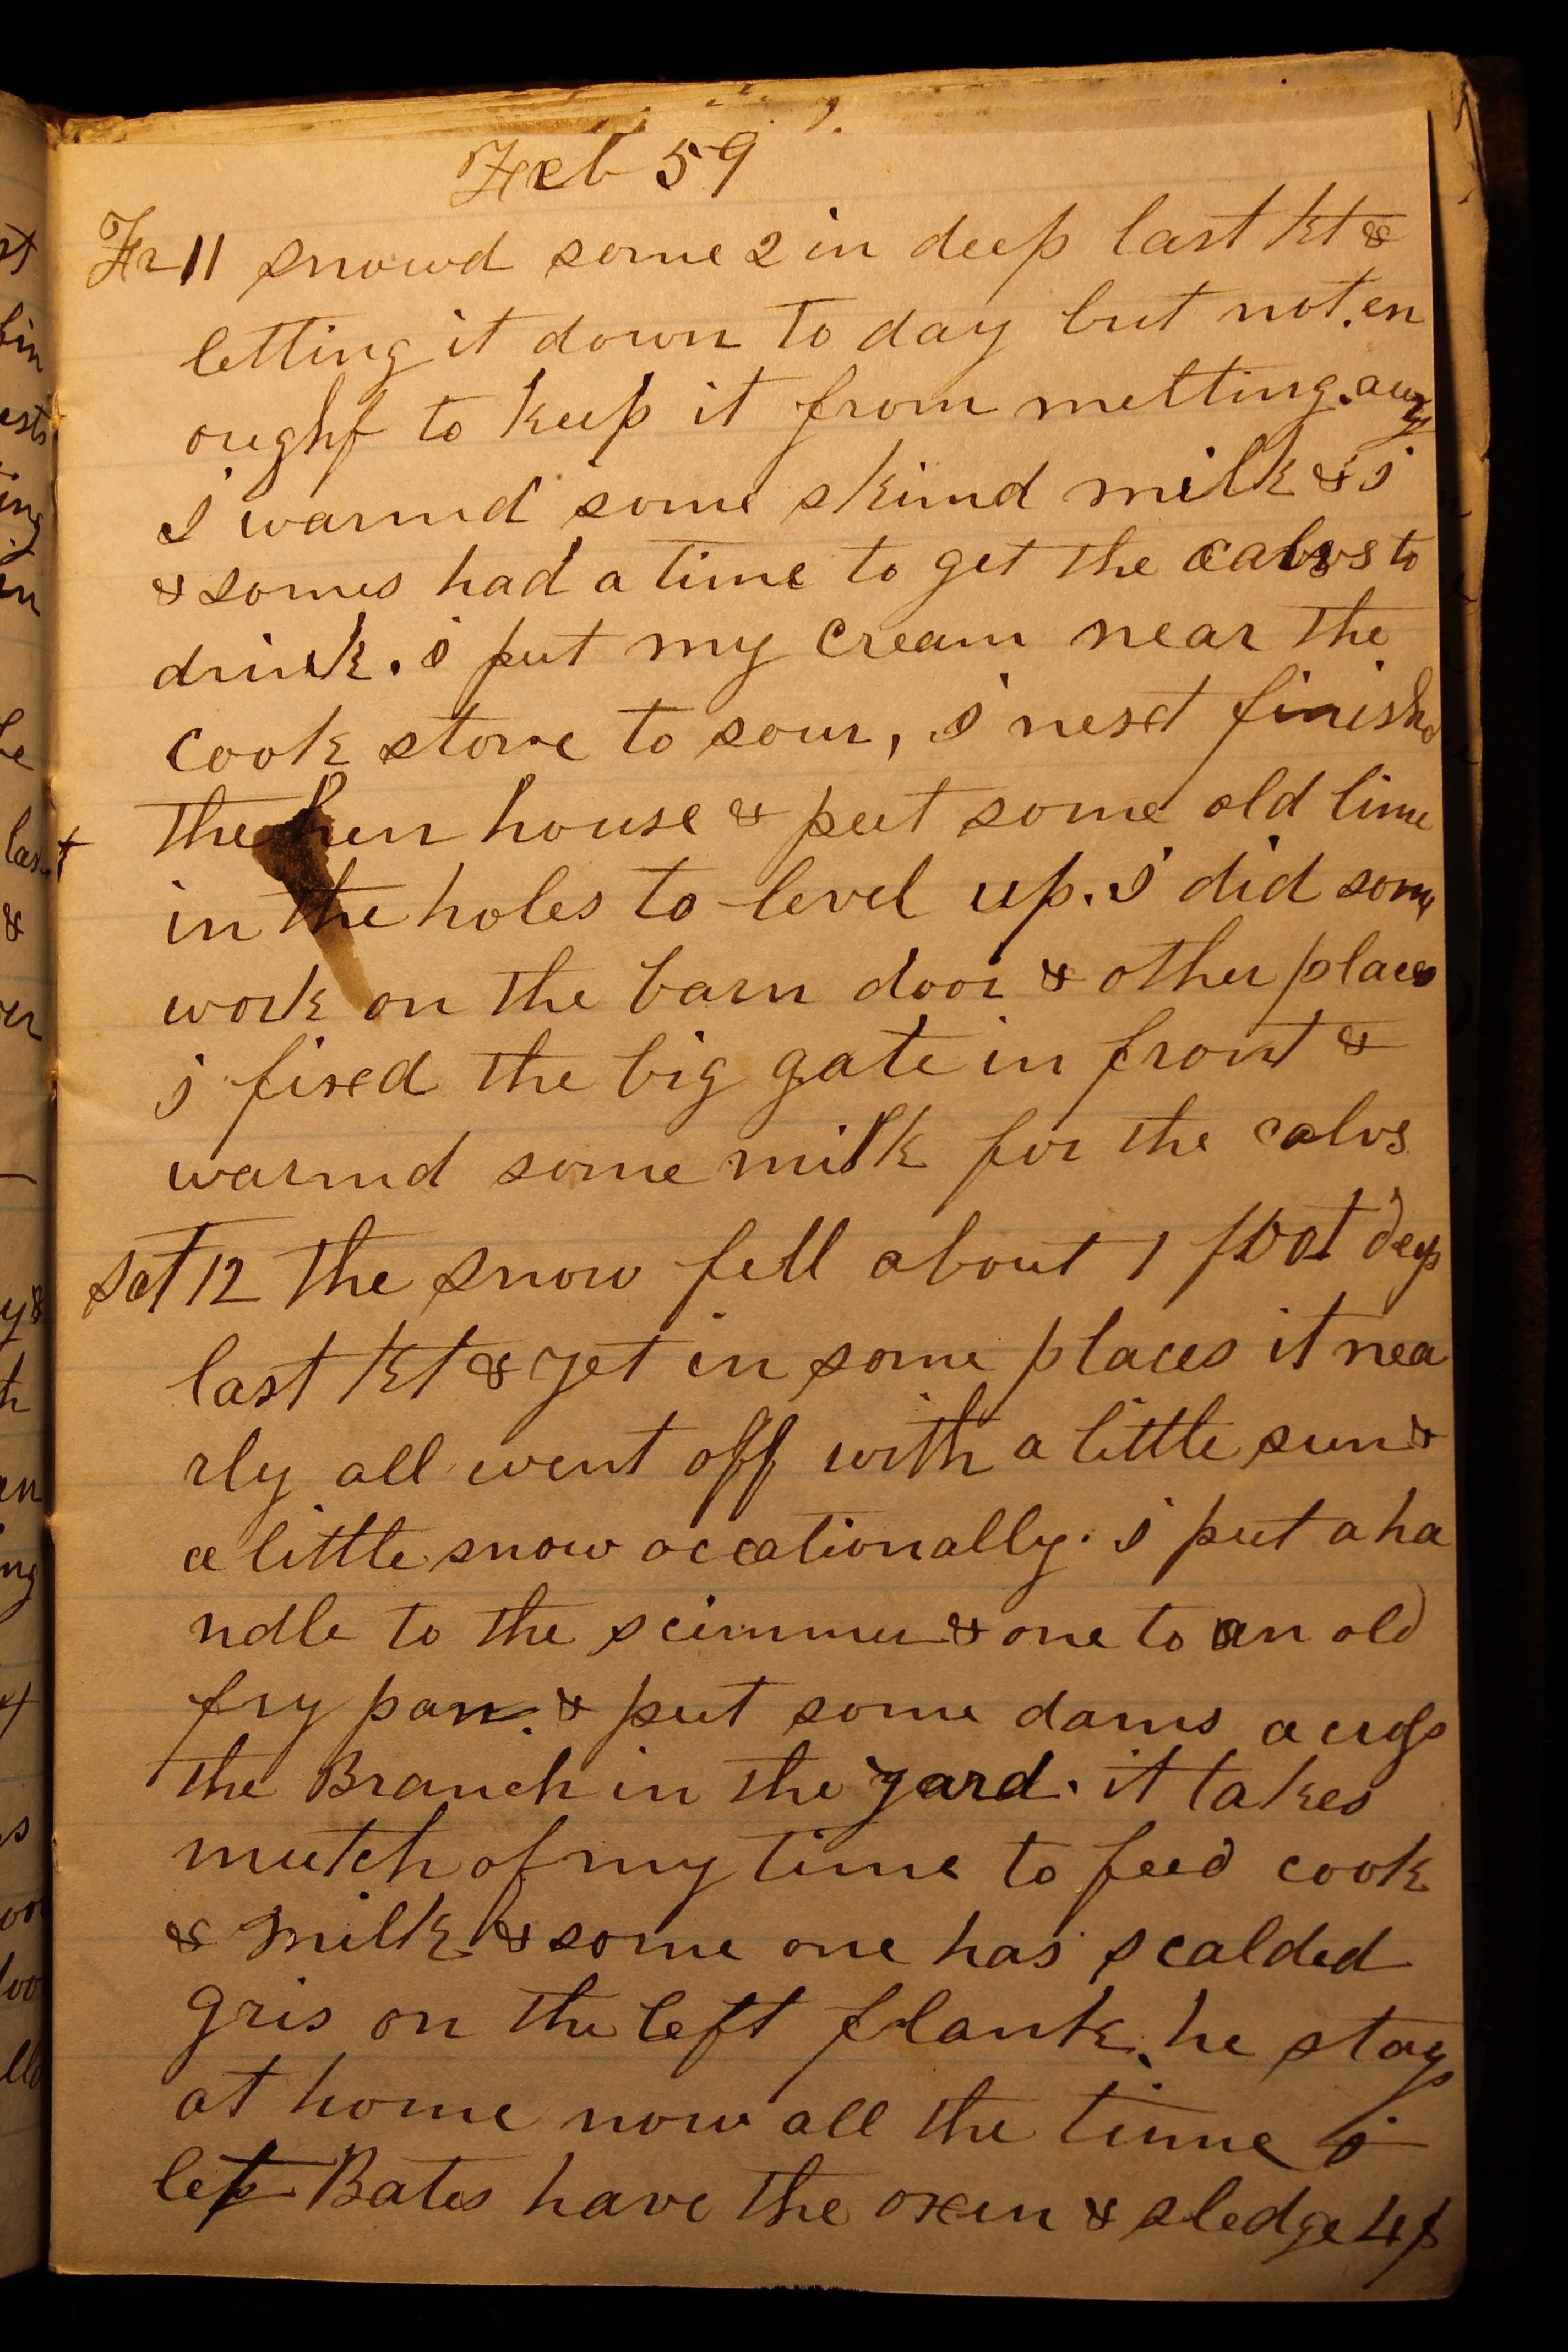 Feb 59
Fr 11 snowd some 2 in deep last kt &
letting it down to day but not en
ought to keep it from melting away
i warmd some skimd milk & i
& somes had a time to get the calvs to
drink. i put my cream near the
cook stove to sour, i next finishd
the hen house & put some old lime
in the holes to level up. i did some
work on the barn door & other places
i fixed the big gate in front &
warmd some milk for the calvs
sat 12 the snow fell about 1 foot deep
last kt & yet in some places it nea
rly all went off with a little sun &
a little snow occationally. i put a ha
ndle to the scimmer & one to an old
fry pan. & put some dams across
the Branch in the yard. it takes
mutch of my time to feed cook
& milk & some one has scalded
gris on the left flank. he stays
at home now all the time i
let Bates have the oxen & sledge